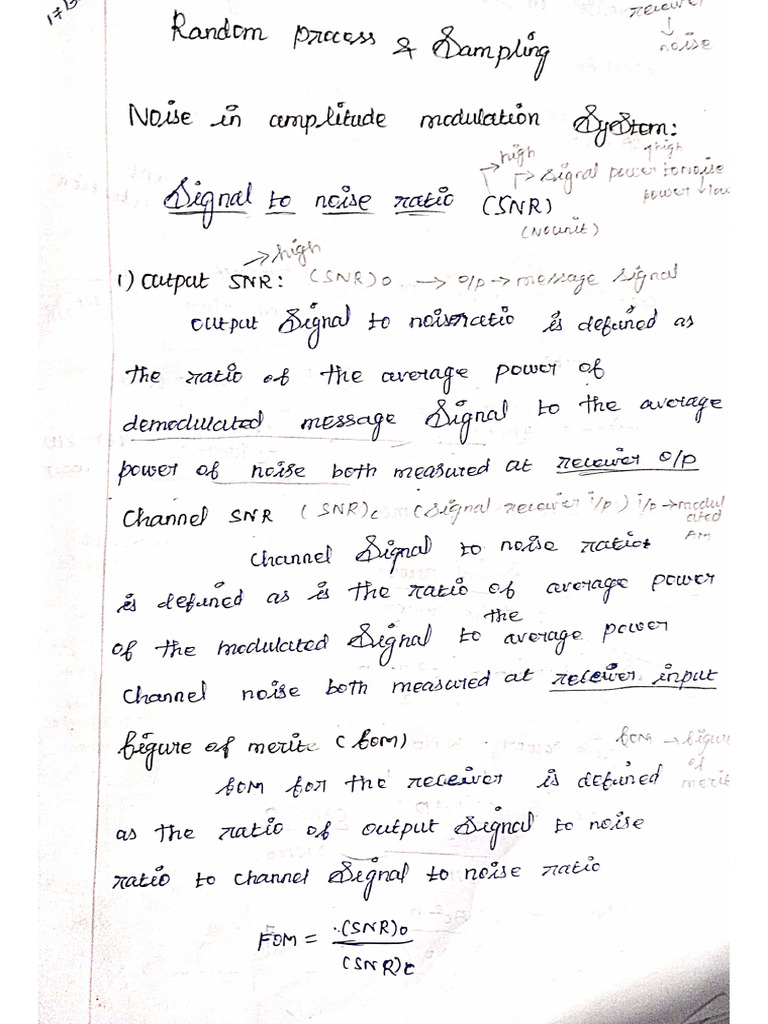 Random process & Sampling
receiver
↓
noise
Noise in amplitude modulation System:
→ high → Signal power ↑ high to noise
power → low
Signal to noise ratio (SNR)
(No unit)
→ high
1) Output SNR: (SNR)o → o/p → message signal
Output Signal to noise ratio is defined as
the ratio of the average power of
demodulated message Signal to the average
power of noise both measured at receiver o/p
Channel SNR (SNR)c (Signal receiver i/p) i/p → modul
ated
AM
Channel Signal to noise ratio
is defined as is the ratio of average power
of the modulated Signal to the average power
Channel noise both measured at receiver input
figure of merite (fom)
fom → figure
of
merit
fom for the receiver is defined
as the ratio of output Signal to noise
ratio to channel Signal to noise ratio
FOM = (SNR)o
(SNR)c